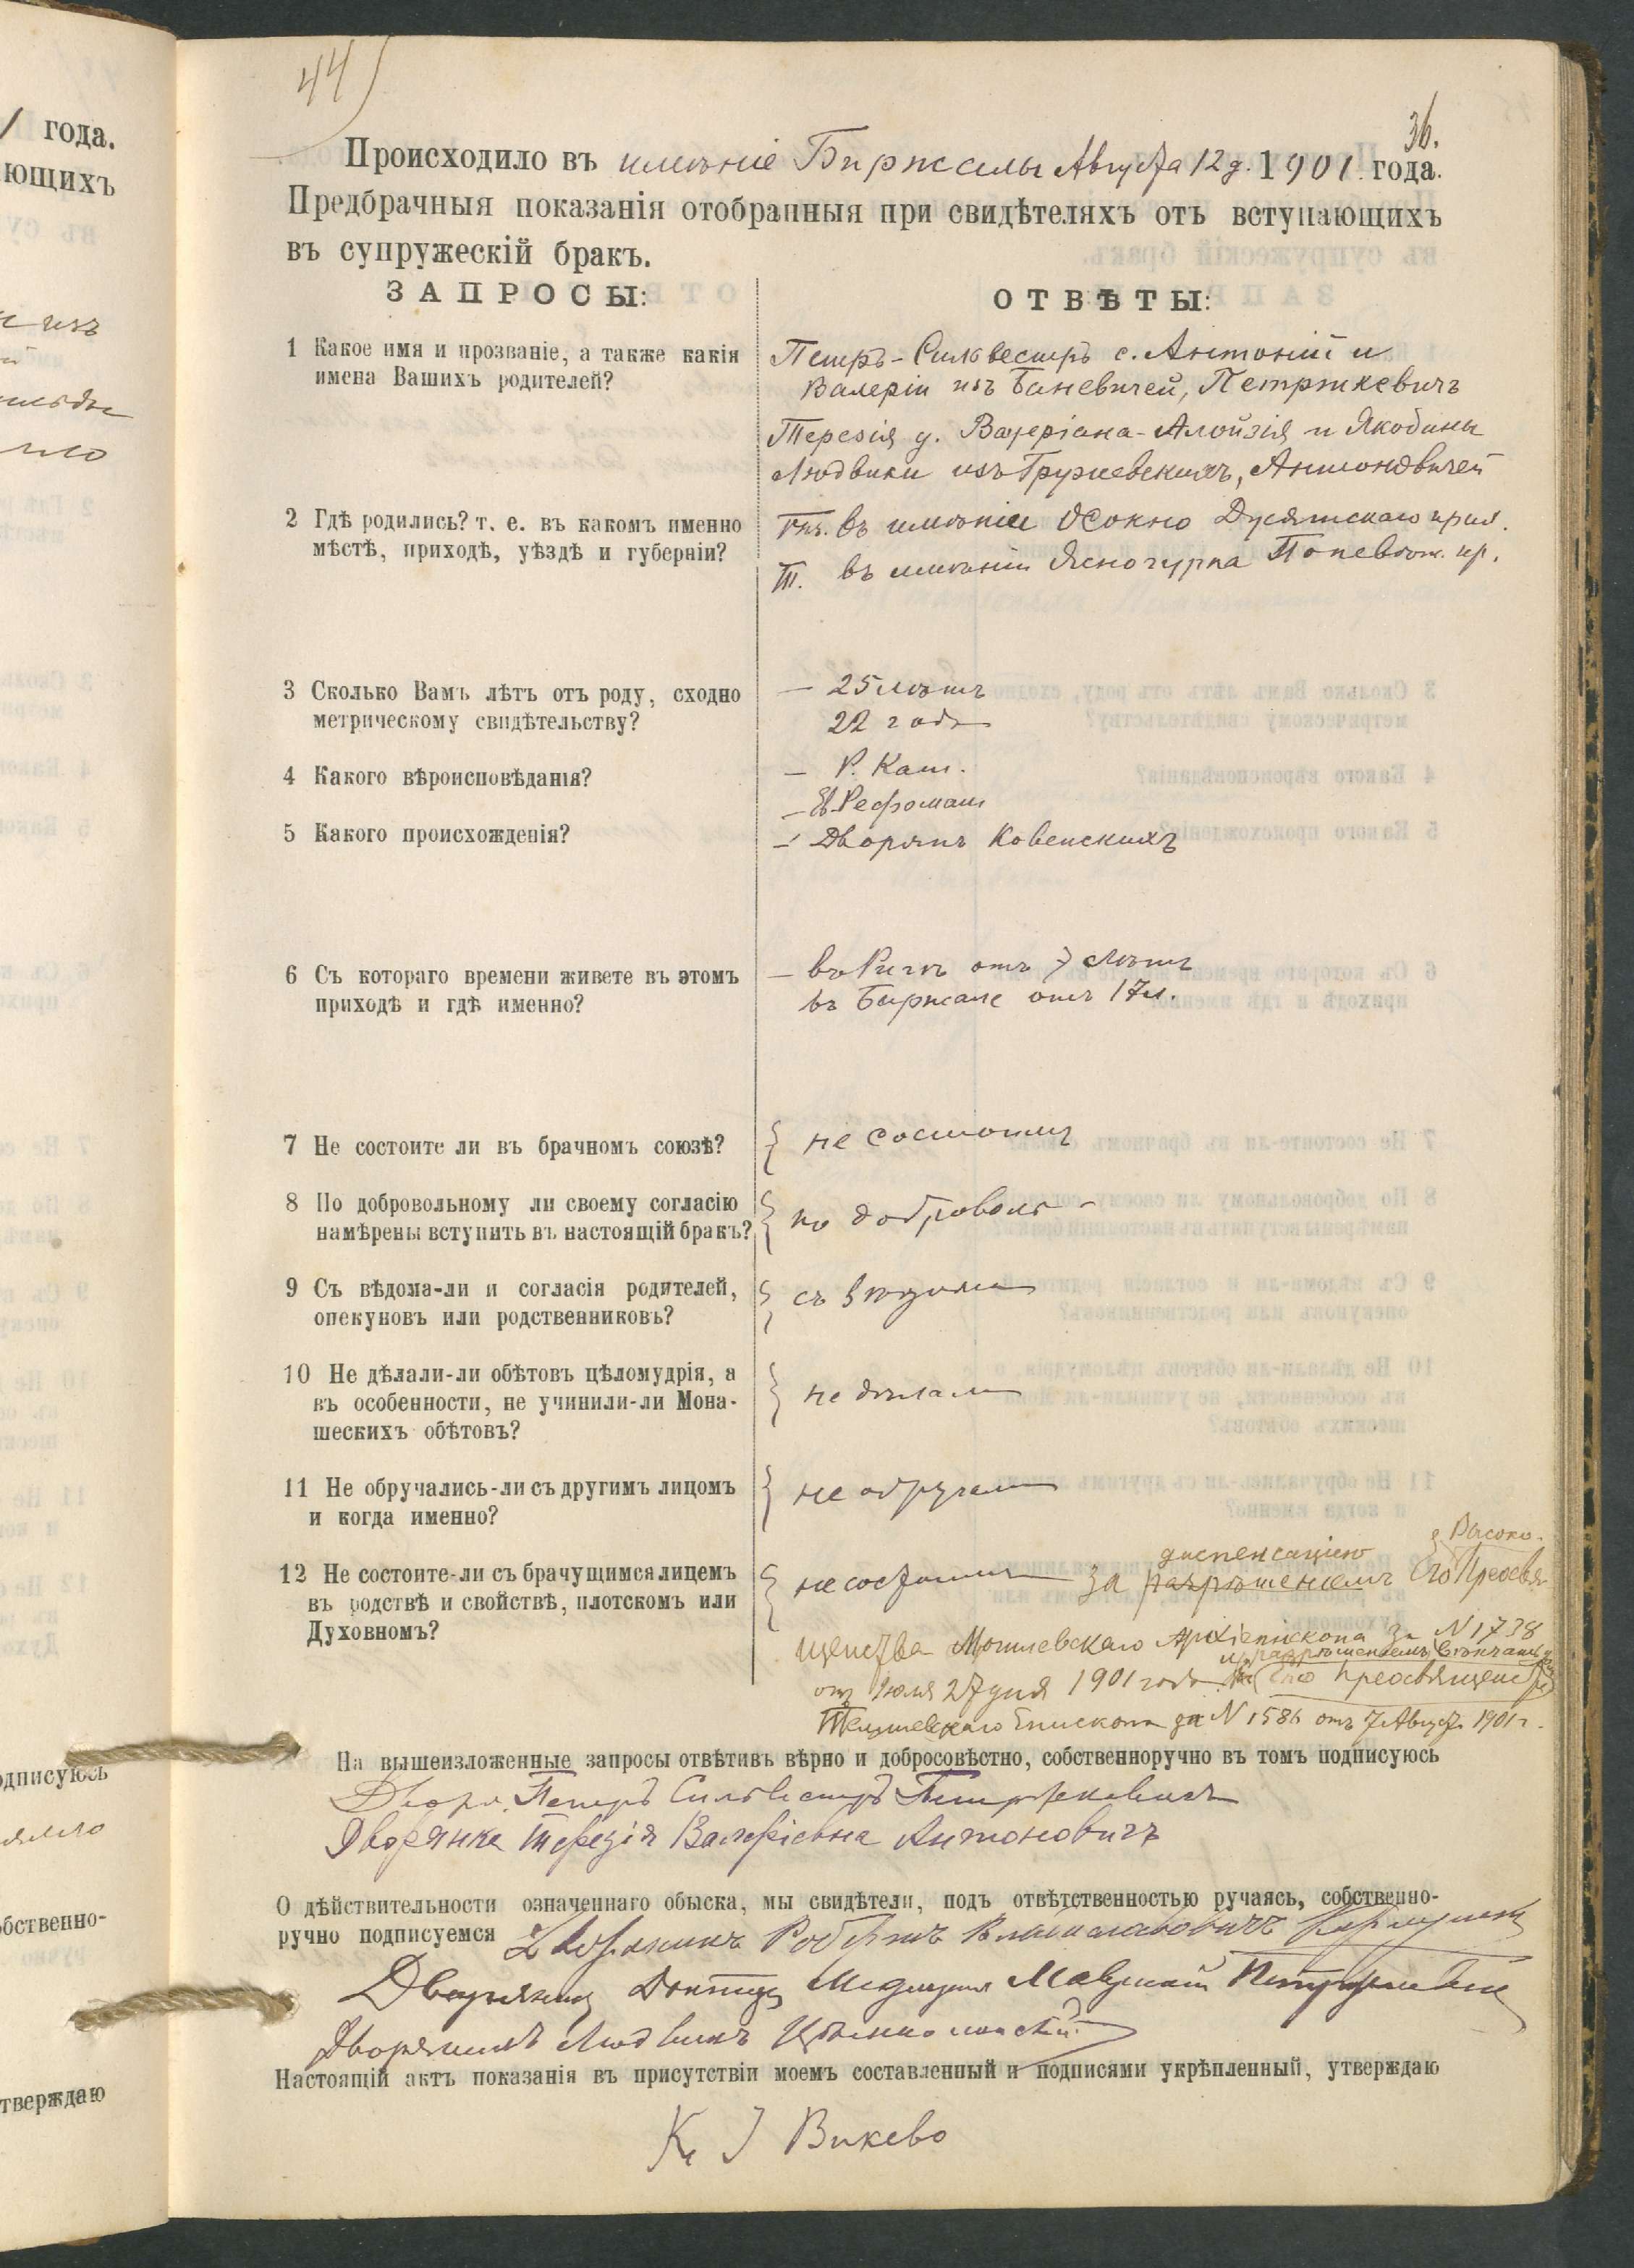 44)
36.
Происходило въ имѣніе Биржалы Августа 12 д. 1901 года.
Предбрачныя показанія отобранныя при свидѣтеляхъ отъ вступающихъ
въ супружескій бракъ.
ЗАПРОСЫ:
ОТВѢТЫ:
1 Какое имя и прозваніе, а также какія
имена Вашихъ родителей?
Петръ-Сильвестръ с. Антоній и
Валеріи изъ Баневичей, Петржкевичъ
Терезія д. Валеріана-Алойзія и Якобины
Людвики изъ Гружевскихъ, Антоновичей
2 Гдѣ родились? т. е. въ какомъ именно
мѣстѣ, приходѣ, уѣздѣ и губерніи?
въ имѣніи Осокно Дусятскаго прих.
Т. въ имѣніи Ясногурка Поневѣж. пр.
3 Сколько Вамъ лѣтъ отъ роду, сходно
метрическому свидѣтельству?
— 25 лѣтъ
22 года
4 Какого вѣроисповѣданія?
— Р. Кат.
— Ев. Реформат
5 Какого происхожденія?
— Дворянъ Ковенскихъ
6 Съ котораго времени живете въ этомъ
приходѣ и гдѣ именно?
— въ Ригѣ отъ 7 лѣтъ
въ Биржале отъ 17 л.
7 Не состоите ли въ брачномъ союзѣ?
не состоимъ
8 По добровольному ли своему согласію
намѣрены вступить въ настоящій бракъ?
по доброволь-
9 Съ вѣдома-ли и согласія родителей,
опекуновъ или родственниковъ?
съ вѣдома
10 Не дѣлали-ли обѣтовъ цѣломудрія, а
въ особенности, не учинили-ли Мона-
шескихъ обѣтовъ?
не дѣлали
11 Не обручались-ли съ другимъ лицомъ
и когда именно?
не обручали
12 Не состоите-ли съ брачущимся лицемъ
въ родствѣ и свойствѣ, плотскомъ или
Духовномъ?
диспенсацію Высоко-
не состоимъ за разрѣшеніемъ Его Преосвя-
щенства Могилевскаго Архіепископа за N 1738
разрѣшеніемъ вѣнчанія
отъ Іюля 27 дня 1901 года Его Преосвященства
Тельшевскаго Епископа за N 1586 отъ 7 Августа 1901 г.
На вышеизложенные запросы отвѣтивъ вѣрно и добросовѣстно, собственноручно въ томъ подписуюсь
Двор. Петръ Сильвестръ Петржкевичъ
Дворянка Терезія Валеріевна Антоновичъ
О дѣйствительности означеннаго обыска, мы свидѣтели, подъ отвѣтственностью ручаясь, собственно-
ручно подписуемся Дворянинъ Робертъ
Дворянинъ Докторъ Медицины
Дворянинъ Людвикъ
Настоящій актъ показанія въ присутствіи моемъ составленный и подписями укрѣпленный, утверждаю
Викево
года.
ющихъ
одписуюсь
обственно-
тверждаю